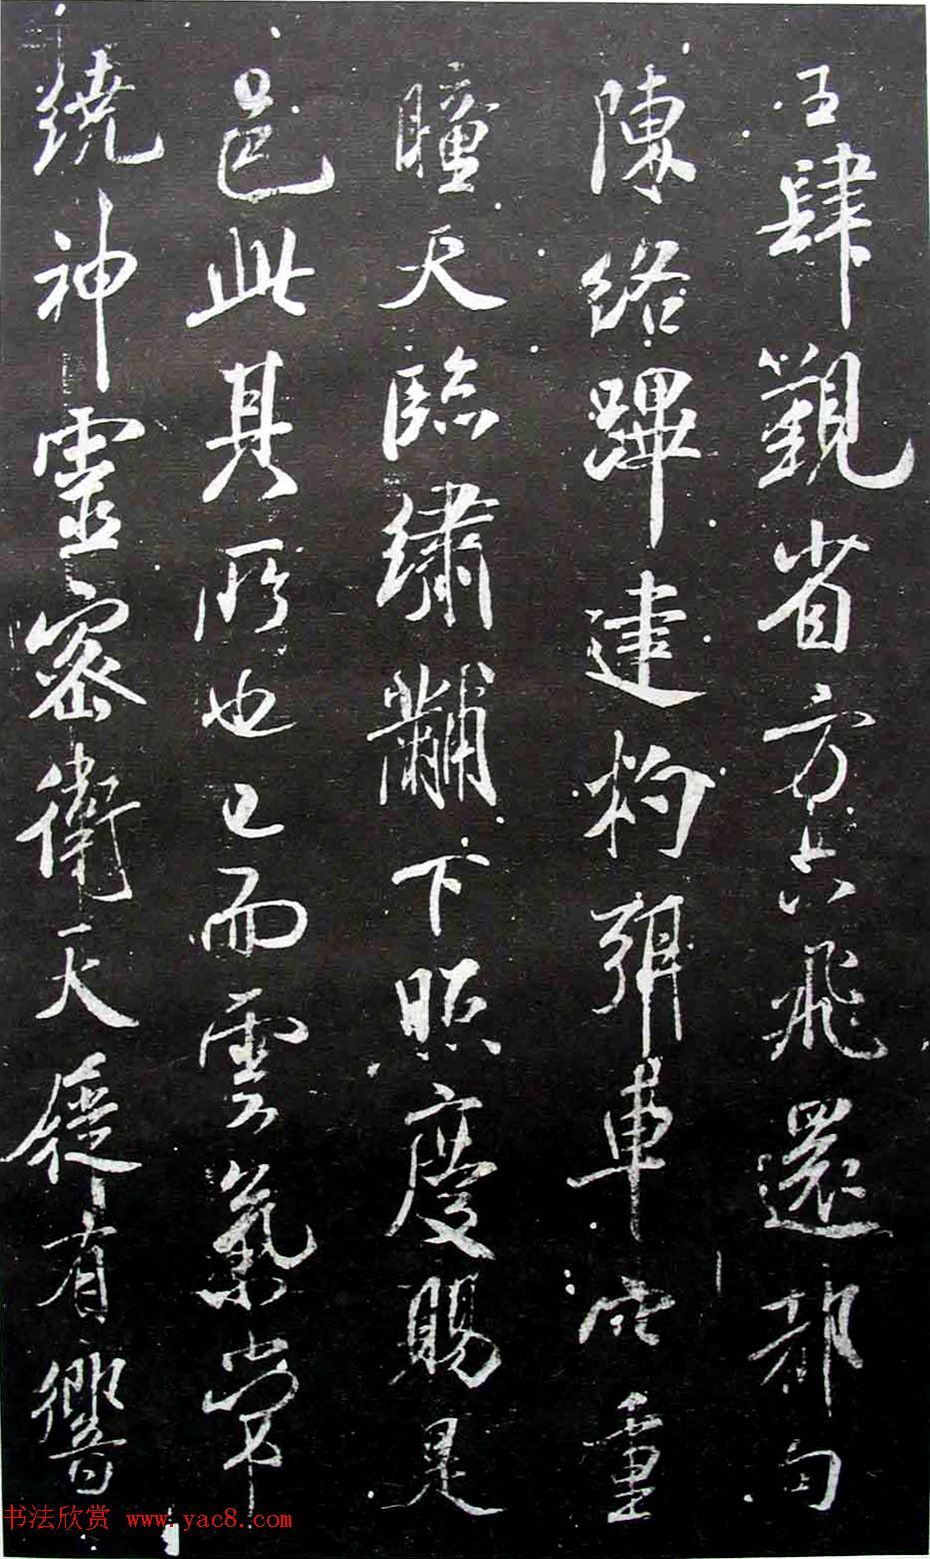 五肆覲省方六飛還都句
陳絡蹕建杓弭車重
瞳天臨繡黼下照慶賜是
邑此其所也已而雲氣常
繞神靈密衛天有響
书法欣赏 www.yac8.com